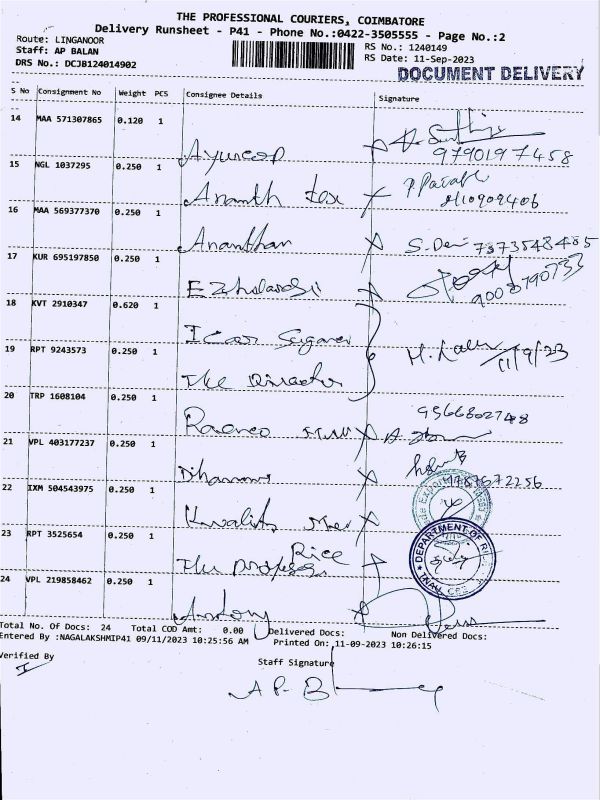 THE PROFESSIONAL COURIERS, COIMBATORE
Delivery Runsheet - P41 - Phone No.:0422-3505555 - Page No.:2
Route: LINGANOOR
RS No.: 1240149
Staff: AP BALAN
RS Date: 11-Sep-2023
DRS No.: DCJB124014902
DOCUMENT DELIVERY
S No Consignment No Weight PCS Consignee Details Signature
14 MAA 571307865 0.120 1
9790197458
15 NGL 1037295 0.250 1
Ananth tex
16 MAA 569377370 0.250 1
Ananthan S. Devi 7373548485
17 KUR 695197850 0.250 1
18 KVT 2910347 0.620 1
11/9/23
19 RPT 9243573 1
0.250
The Director
20 TRP 1608104 0.250 1
9566802748
21 VPL 403177237 0.250 1
22 IXM 504543975 0.250 1
Kwality
23 RPT 3525654 0.250 1
Rice
The Professor
DEPARTMENT OF RICE
24 VPL 219858462 0.250 1
Antony
Total No. Of Docs: 24 Total COD Amt: 0.00 Delivered Docs: Non Delivered Docs:
Entered By :NAGALAKSHMIP41 09/11/2023 10:25:56 AM Printed On: 11-09-2023 10:26:15
Verified By
Staff Signature